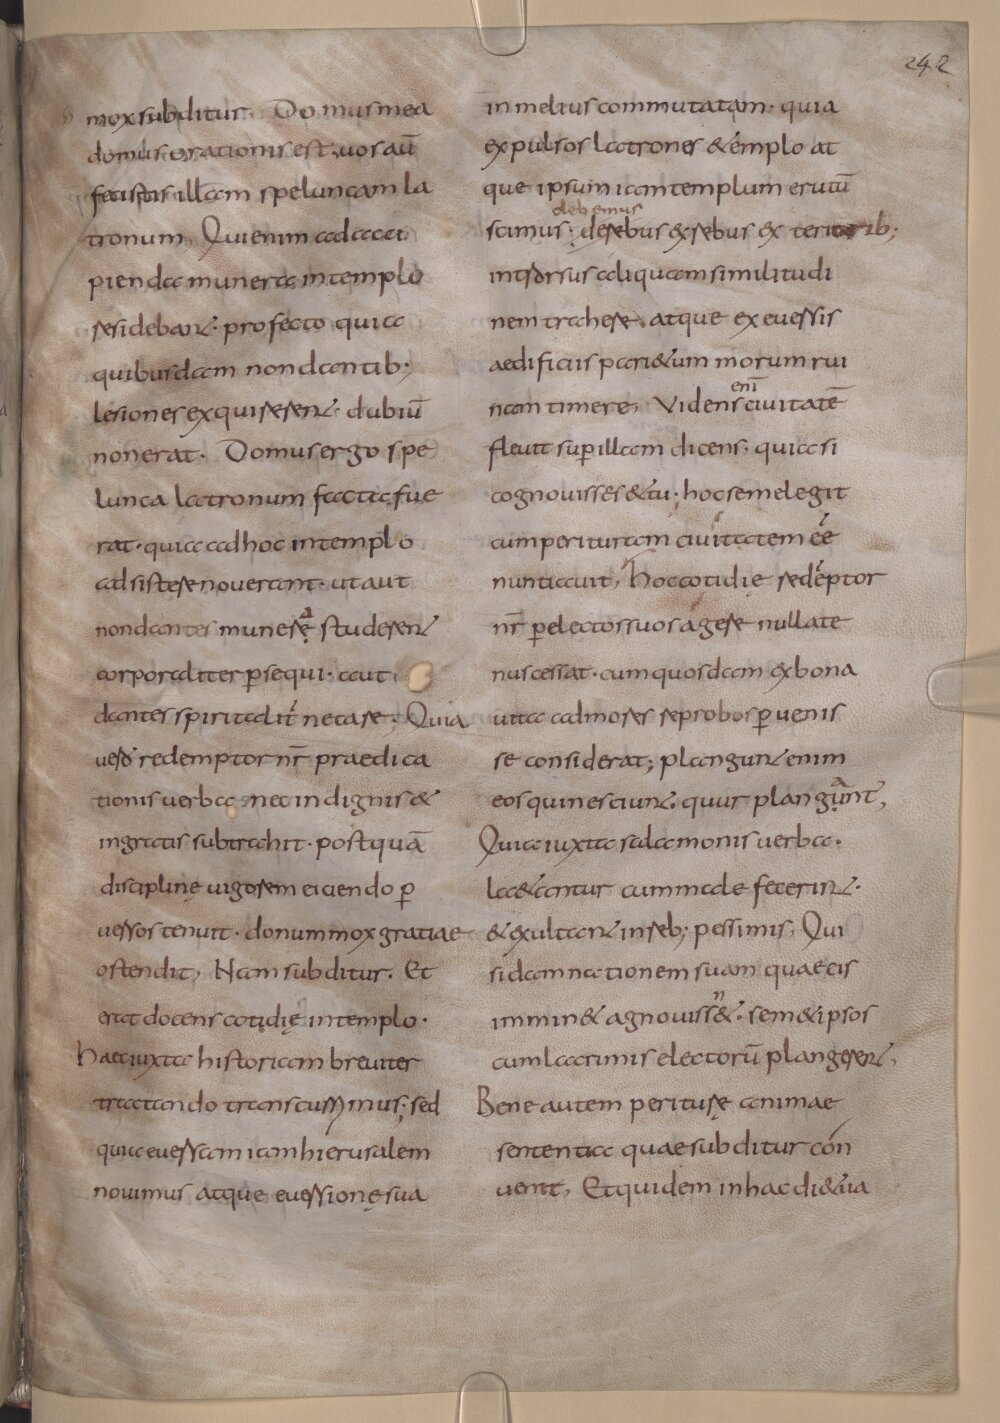 242
mox subditur. Domus mea
domus orationis est. vos aū
fecistis illam speluncam la
tronum, Qui enim ad acci
pienda munera in templo
residebant. profecto quia
quibusdam non dantib;
lesiones exquirerent. dubiū
non erat. Domus ergo spe
lunca latronum facta fue
rat. quia ad hoc in templo
adsistere noverant. ut aut
non dantes munera studerent
corporaliter ꝑsequi. aut
dantes spiritalit̄ necare. Quia
vero redemptor nr̄ praedica
tionis verba nec indignis &
ingratis subtrahit. postquā
disciplinę vigorem eiciendo ꝑ
versos tenuit. donum mox gratiae
ostendit, Nam subditur. Et
erat docens cotidię in templo.
Haec iuxta historiam breviter
tractando transcurrimus; sed
quia eversam iam hierusalem
novimus atque eversionę sua
in melius commutatam. quia
expulsos latrones & emplo at
que ipsum iam templum erutū
debemus
scimus. de rebus exrebus exteriorib;
introrsus aliquam similitudi
nem trahere. atque ex eversis
aedificiis pari&um morum rui
nam timere, Videns enī civitatē
flevit sup illam dicens. quia si
cognovisses & tu; hoc semel egit
cum perituram civitatem ēē
nuntiavit, hoc cotidie redēptor
nr̄ ꝑ electos suos agere nullate
nus cessat. cum quosdam ex bona
vita ad mores reprobos ꝑvenis
se considerat; plangunt enim
eos qui nesciunt. quur plangantur,
Quia iuxta salamonis verba.
la&antur cum male fecerint.
& exultant in reb; pessimis, Qui
si damnationem suam quae eis
immin& agnovissent. sem&ipsos
cum lacrimis electorū plangerent,
Bene autem periturę animae
sententia quae subditur con
venit, Et quidem in hac die tua